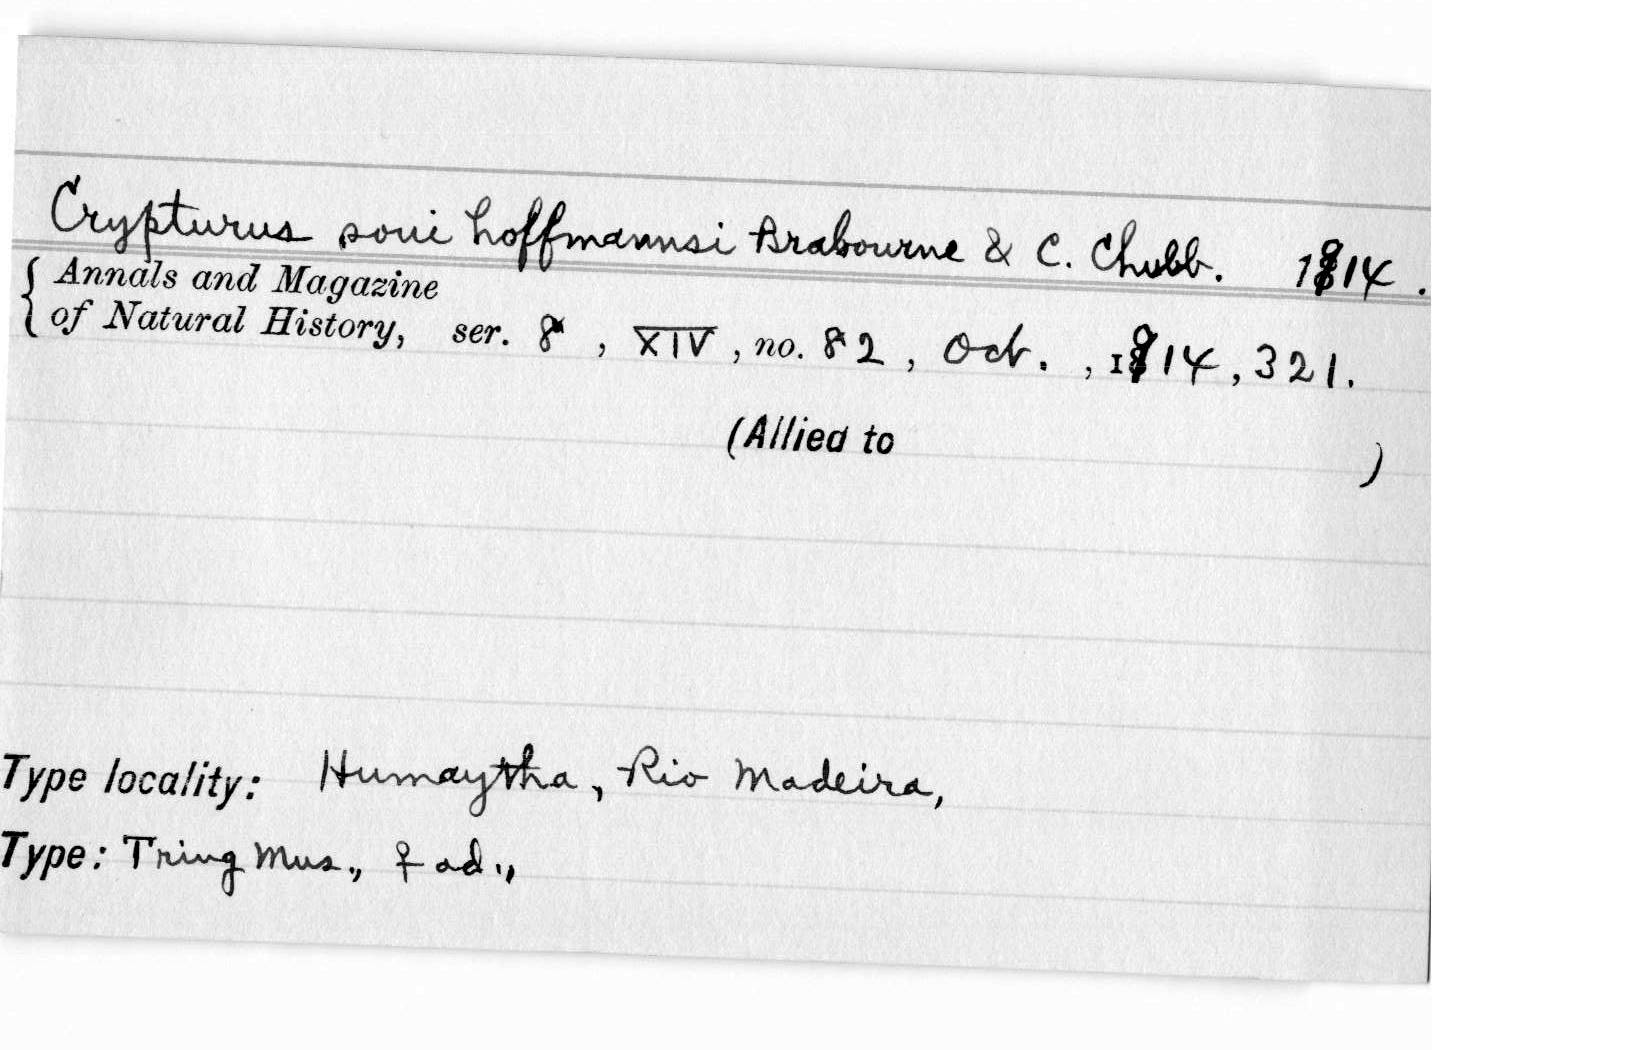 Crypturus soui hoffmannsi Brabourne & C. Chubb. 1914.
Annals and Magazine
of Natural History, ser. 8, XIV, no. 82, Oct., 1914, 321.
(Allied to )
Type locality: Humaytha, Rio Madeira,
Type: Tring Mus., ♀ ad.,